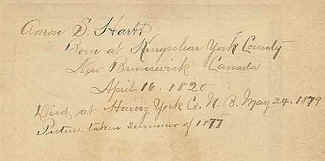 Aaron S. Hartt
Born at Kingsclear York County
New Brunswick Canada
April 16, 1820
Died, at Harvey York Co. N. B. May 24. 1879
Picture taken summer of 1877